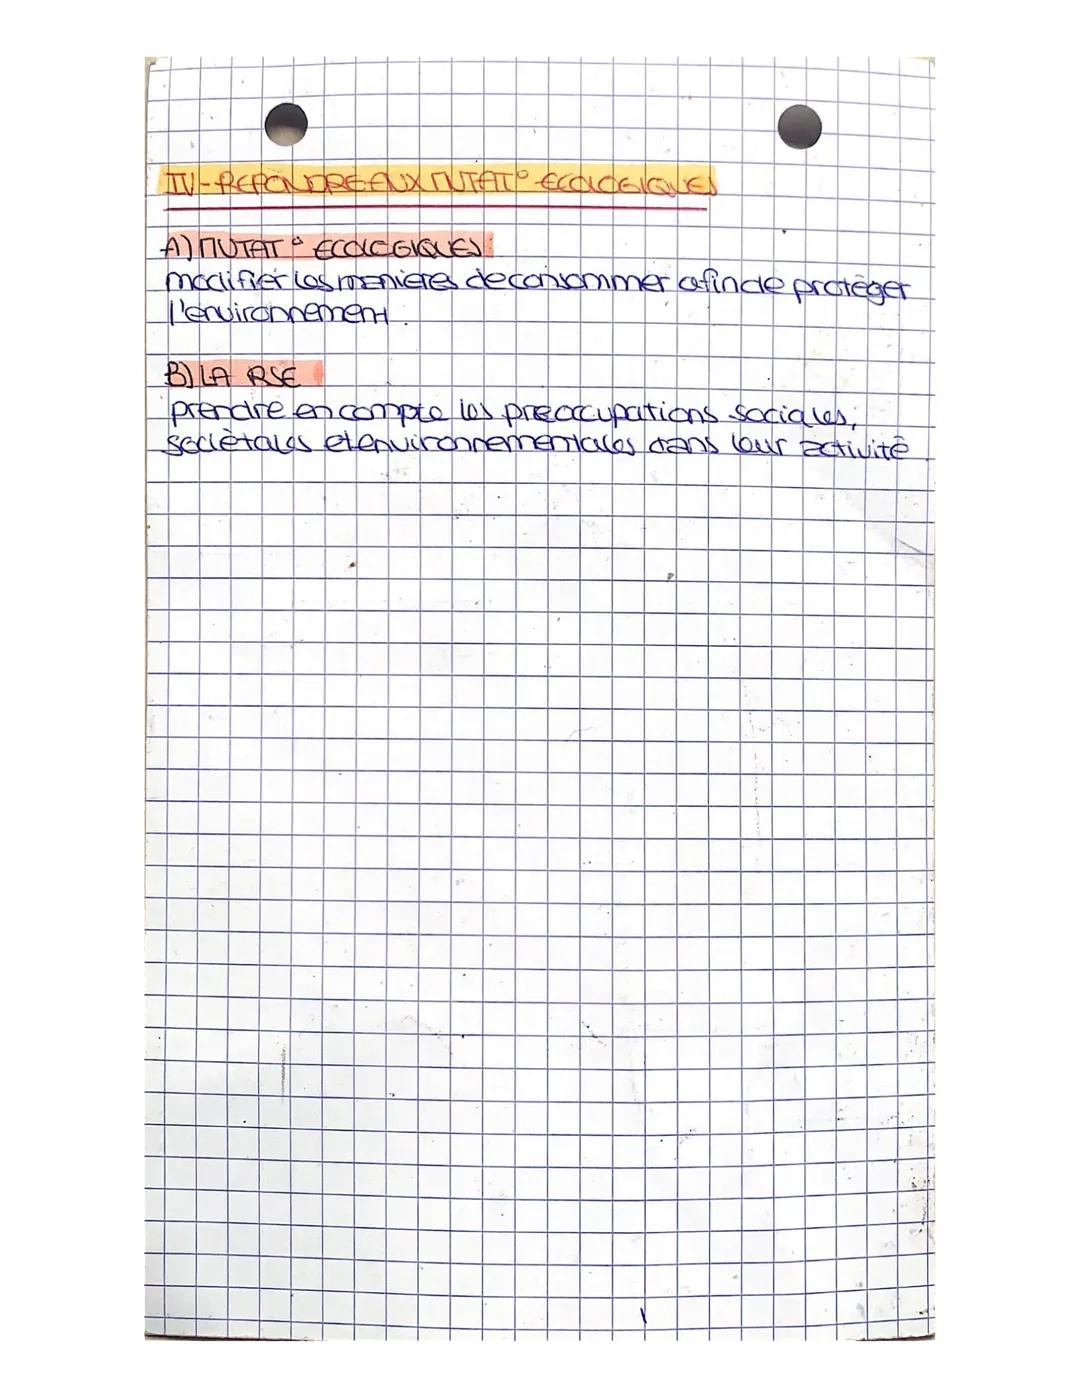 IV-REPONDRE AUX MUTAT° ECOLOGIQUES
A) MUTAT° ECOLOGIQUES:
modifier les manières de consommer afin de protéger
l'environnement.
B) LA RSE
prendre en compte les préoccupations sociales,
sociètales et environnementales dans leur activité.